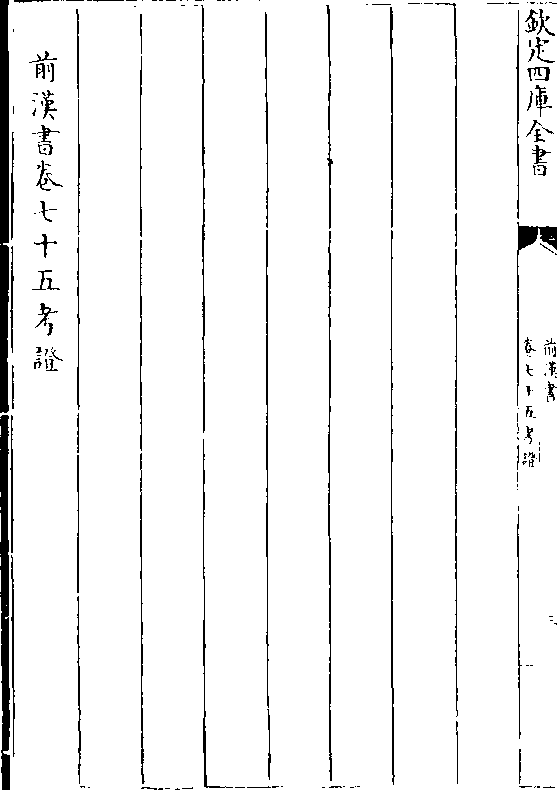 欽定四庫全書
前漢書
卷七十五考證
三
前漢書卷七十五考證